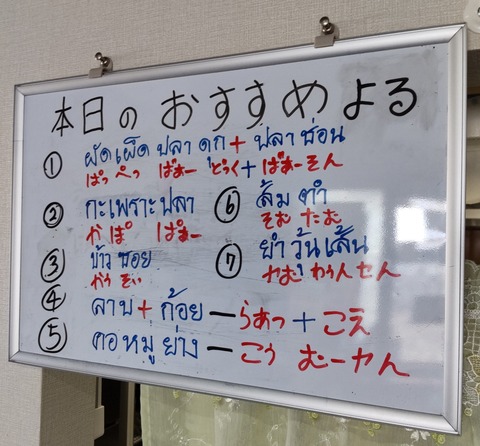 本日の おすすめ よる
① ผัดเผ็ด ปลา ดุก + ปลา ช่อน
ぱっ ぺっ ぱぁー どぅく + ぱぁーそん
② กะเพราะปลา
かぱ ぱぁー
③ ข้าว ซอย
かう そい
④ ลาบ + ก้อย — らあっ + こえ
⑤ คอหมู ย่าง — こう むーやん
⑥ ส้ม ตำ
そむ たむ
⑦ ยำ วุ้น เส้น
やむ わうん せん